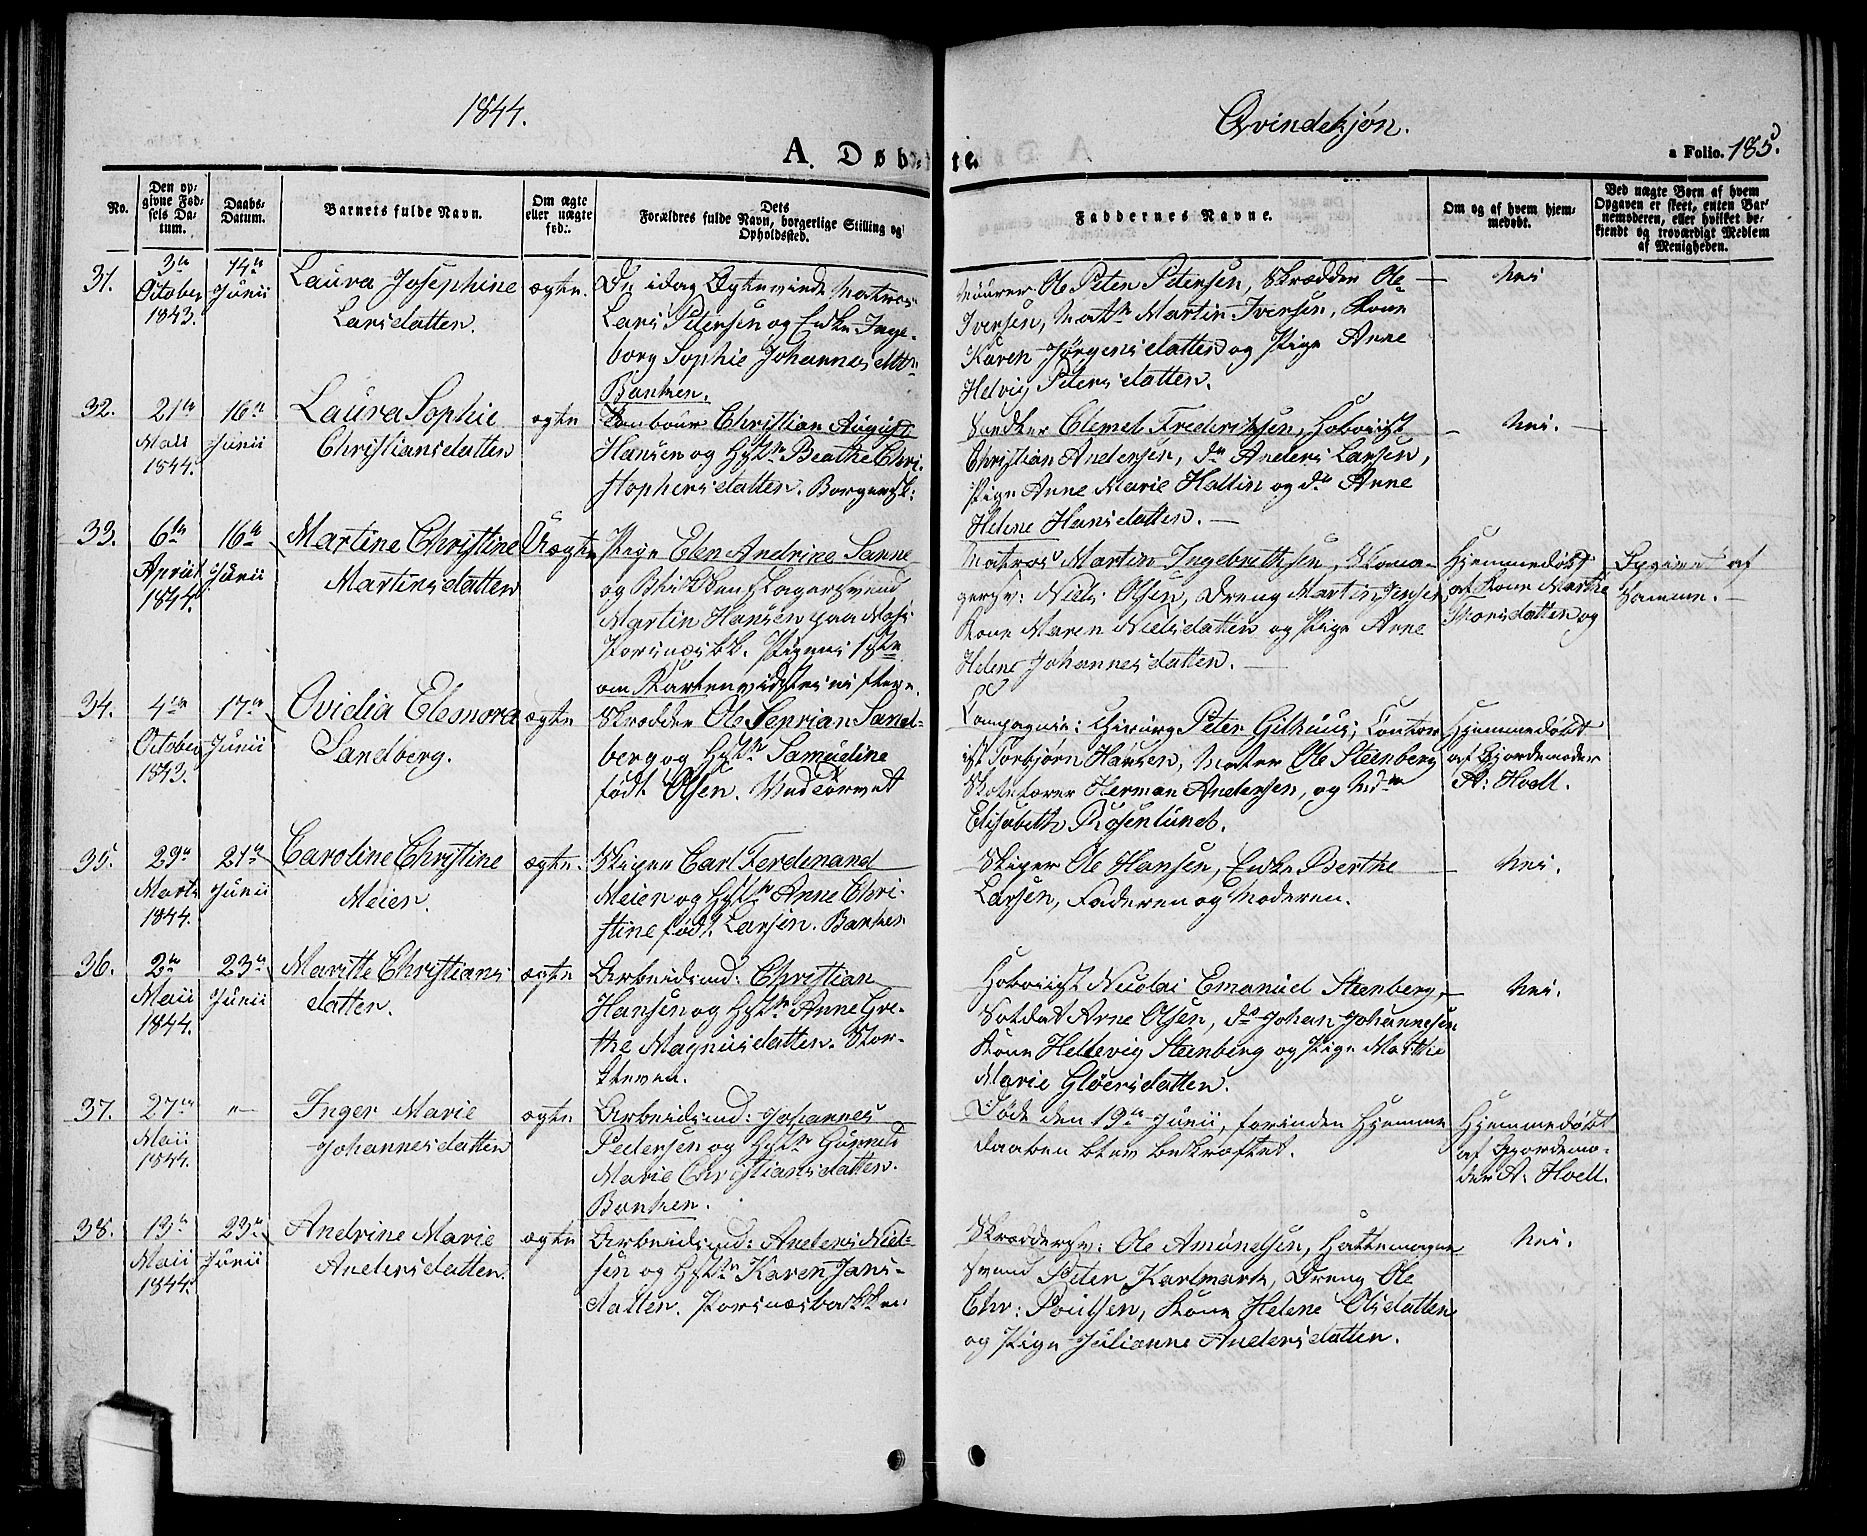 1844.
Qvindekjøn.
A. Døbte.
a Folio. 185.
No.
Den op-
givne Fød-
sels Da-
tum.
Daabs-
Datum.
Barnets fulde Navn.
Om ægte
eller uægte
fød:.
Dets
Forældres fulde Navn, borgerlige Stilling og
Opholdssted.
Faddernes Navne.
Om og af hvem hjem-
medøbt.
Ved uægte Børn af hvem
Opgaven er skeet, enten Bar-
nemoderen, eller hvilket be-
kjendt og troværdigt Medlem
af Menigheden.
31.
3de
October
1843.
14de
Junii
Laura Josephine
Larsdatter.
ægte.
De idag Ægteviede Matros
Lars Petersen og Enke Inge-
borg Sophie Johannesdtr
Banken.
Murer Ole Peter Petersen, Skrædder Ole
Iversen, Matr Martin Iversen, Kone
Karen Jørgensdatter og Pige Anne
Helvig Petersdatter.
Nei
32.
21de
Maii
1844.
16de
Junii
Laura Sophie
Christiansdatter
ægte
Tambour Christian August
Hansen og Hstr Beathe Chri-
stophersdatter. Borgersk:
Snedker Clemet Frederiksen, Hoboist
Christian Andersen, do Anders Larsen,
Pige Anne Marie Hallin og do Anne
Helene Hansdatter.
Nei.
33.
6te
April
1844.
16de
Junii
Martine Christine
Martinsdatter
Uægte
Pige Elen Andrine Sanne
og Blikkenslagersvend
Martin Hansen paa Moss
Porsnæsbk. Pigens 1ste
om Karlen vidstes ei flere.
Matros Martin Ingebrethsen, Skoma-
gersv: Niels Olsen, Dreng Martin Jensen
Kone Maren Nielsdatter og Pige Anne
Helene Johannesdatter.
Hjemmedøbt
af Kone Marthe
Thorsdatter og
Opgivet af
Samme.
34.
4de
October
1843.
17de
Junii
Ovidia Elenora
Sandberg.
ægte
Skrædder Ole Seprian Sand-
berg og Hstr Samueline
født Olsen. Ved Torvet
Compagnie: Chirurg Peter Gilhuus, Contor-
ist Torbjørn Hansen, Maler Ole Steenberg
Skolelærer Herman Andersen, og Mdm
Elisabeth Rosenlund.
Hjemmedøbt
af Gjordemoder
A: Hvell.
35.
29de
Marts
1844.
21de
Junii
Caroline Christine
Meier.
ægte.
Skiper Carl Ferdinand
Meier og Hstr Anne Chri-
stine født Larsen. Banken
Skiper Ole Hansen, Enke Berthe
Larsen, Faderen og Moderen.
Nei.
36.
2de
Maii
1844.
23de
Junii
Maritte Christians
datter.
ægte
Arbeidsmd: Christian
Hansen og Hstr Anne Gre-
the Magnusdatter. Stor-
kleven.
Hoboist Nicolai Emanuel Steenberg,
Soldat Arne Olsen, do Johan Johannesen
Kone Hellevig Steenberg og Pige Mathie
Marie Gløersdatter.
Nei.
37.
27de
Maii
1844.
"
Inger Marie
Johannesdatter
ægte
Arbeidsmd: Johannes
Pedersen og Hstr Gunnild
Marie Christiansdatter.
Banken.
Døde den 19de Junii, forinden Hjemme
daaben blev bekræftet.
Hjemmedøbt
af Gjordemo-
der A. Hvell.
38.
13de
Maii
1844.
23de
Junii
Andrine Marie
Andersdatter.
ægte
Arbeidsmd: Anders Niel-
sen og Hstr Karen Jans-
datter. Porsnæsbakken.
Skræddersv: Ole Amundsen, Hattemager
svend Peter Karlmark, Dreng Ole
Chr: Poulsen, Kone Helene Olsdatter
og Pige Julianne Andersdatter.
Nei.